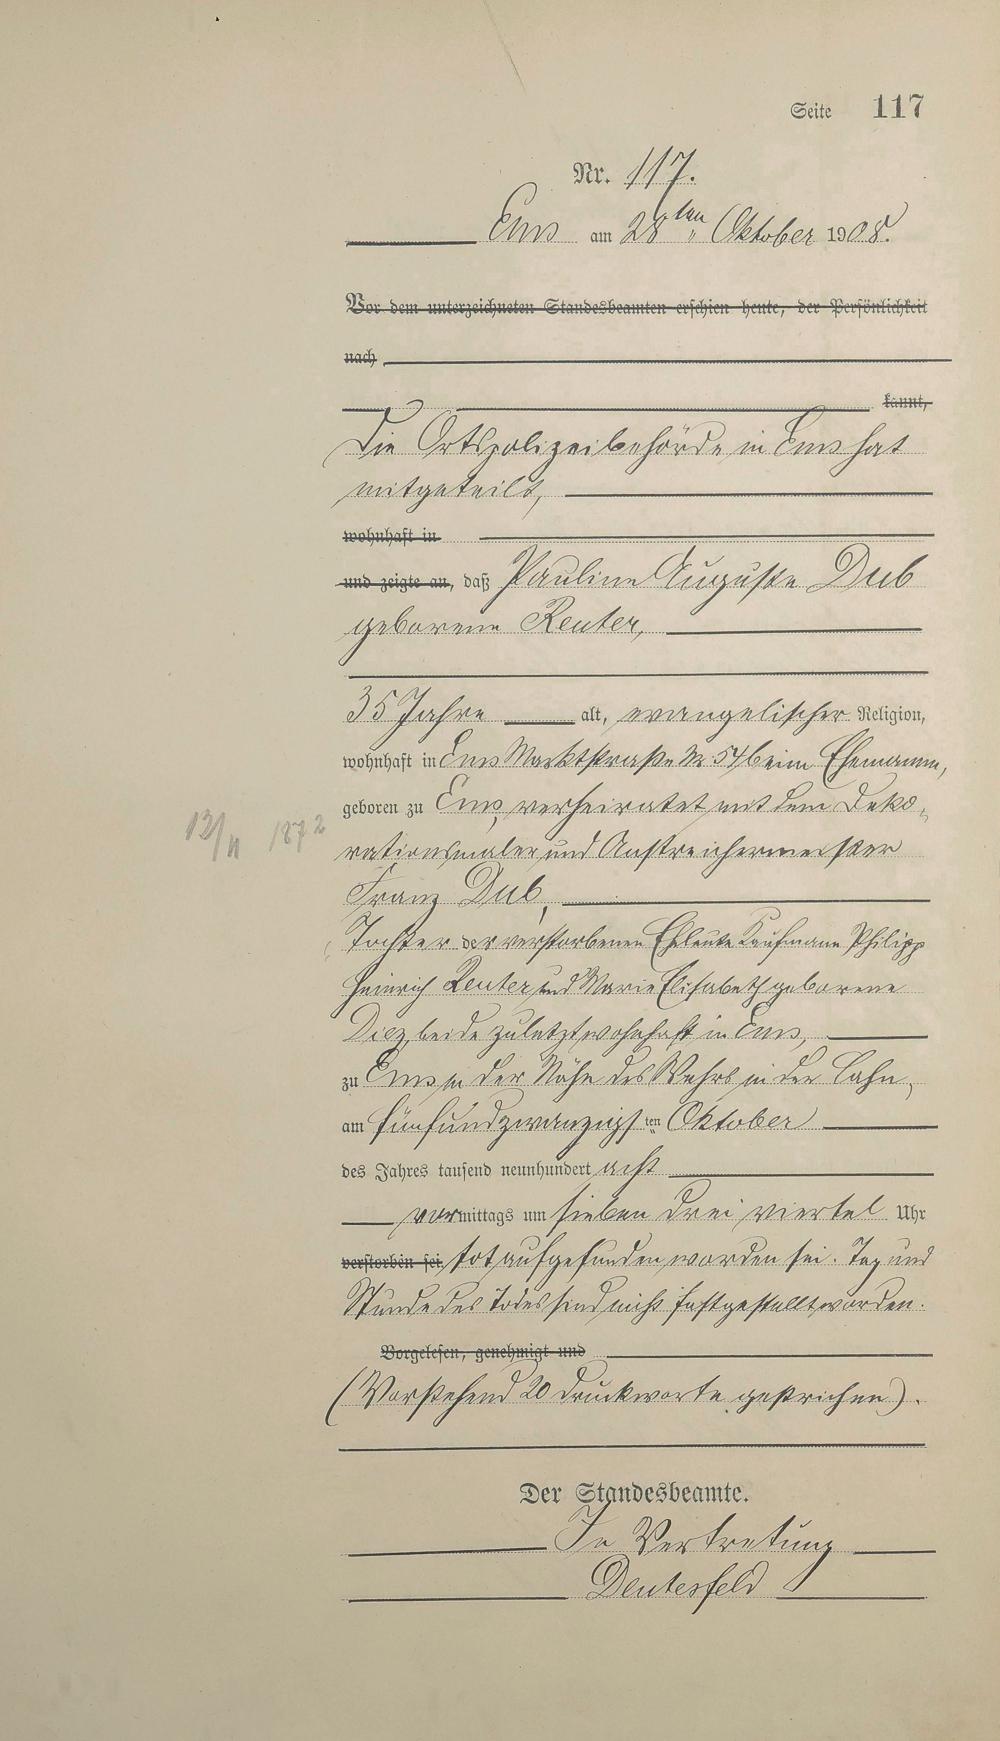 Seite 117
Nr. 117.
Ems am 28ten Oktober 1908.
Vor dem unterzeichneten Standesbeamten erschien heute, der Persönlichkeit
nach
kannt,
Die Ortspolizeibehörde in Ems hat
mitgeteilt,
wohnhaft in
und zeigte an, daß Pauline Auguste Dub
geborene Reuter,
35 Jahre alt, evangelischer Religion,
wohnhaft in Ems Marktstraße Nr 54 beim Ehemann,
geboren zu Ems, verheiratet mit dem Deko-
12/11 1872
rationsmaler und Anstreichermeister
Franz Dub,
Tochter der verstorbenen Eheleute Kaufmann Philipp
Heinrich Reuter und Marie Elisabeth geborene
Diez, beide zuletzt wohnhaft in Ems,
zu Ems in der Nähe des Wehrs in der Lahn,
am fünfundzwanzigsten Oktober
des Jahres tausend neunhundert acht
vormittags um sieben drei viertel Uhr
verstorben sei, tot aufgefunden worden sei. Tag und
Stunde des Todes sind nicht festgestellt worden.
Vorgelesen, genehmigt und
(Vorstehend 20 Druckworte gestrichen).
Der Standesbeamte.
In Vertretung
Deutesfeld